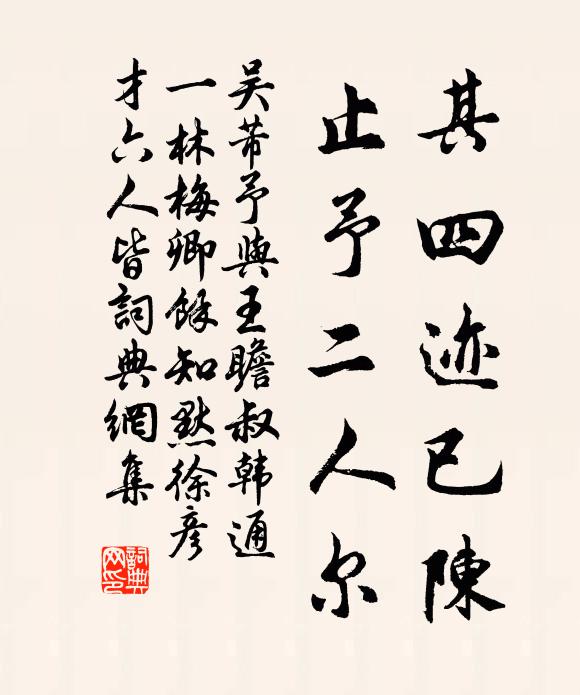 其四迹已陳
止予二人尔
吴芾予與王瞻叔韩通
一林梅卿餘知默徐彦
才六人皆詞典網集
詞典
网印